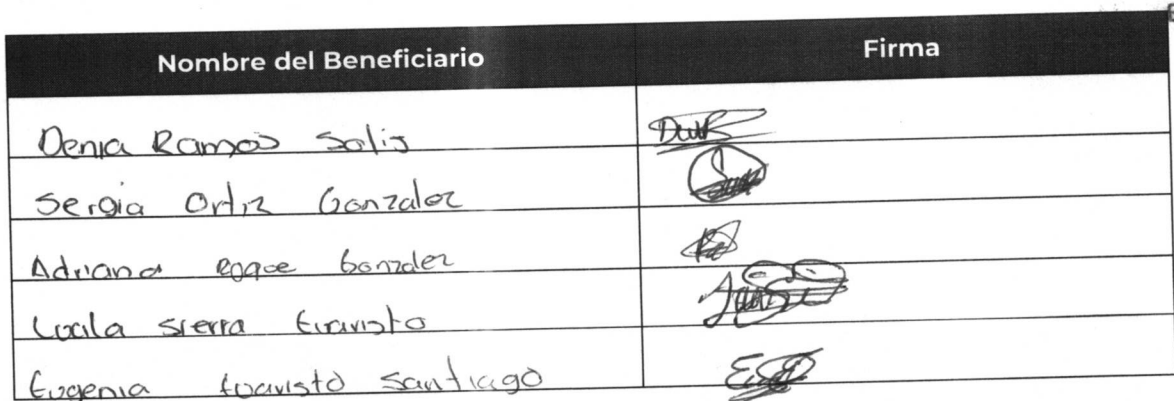 Nombre del Beneficiario Firma
Denia Ramos Solis
Sergia Ortiz Gonzalez
Adriana Roque Gonzalez
sierra Evaristo
Eugenia Evaristo Santiago